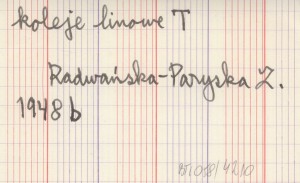 koleje linowe T
Radwańska-Paryska Z.
1948 b